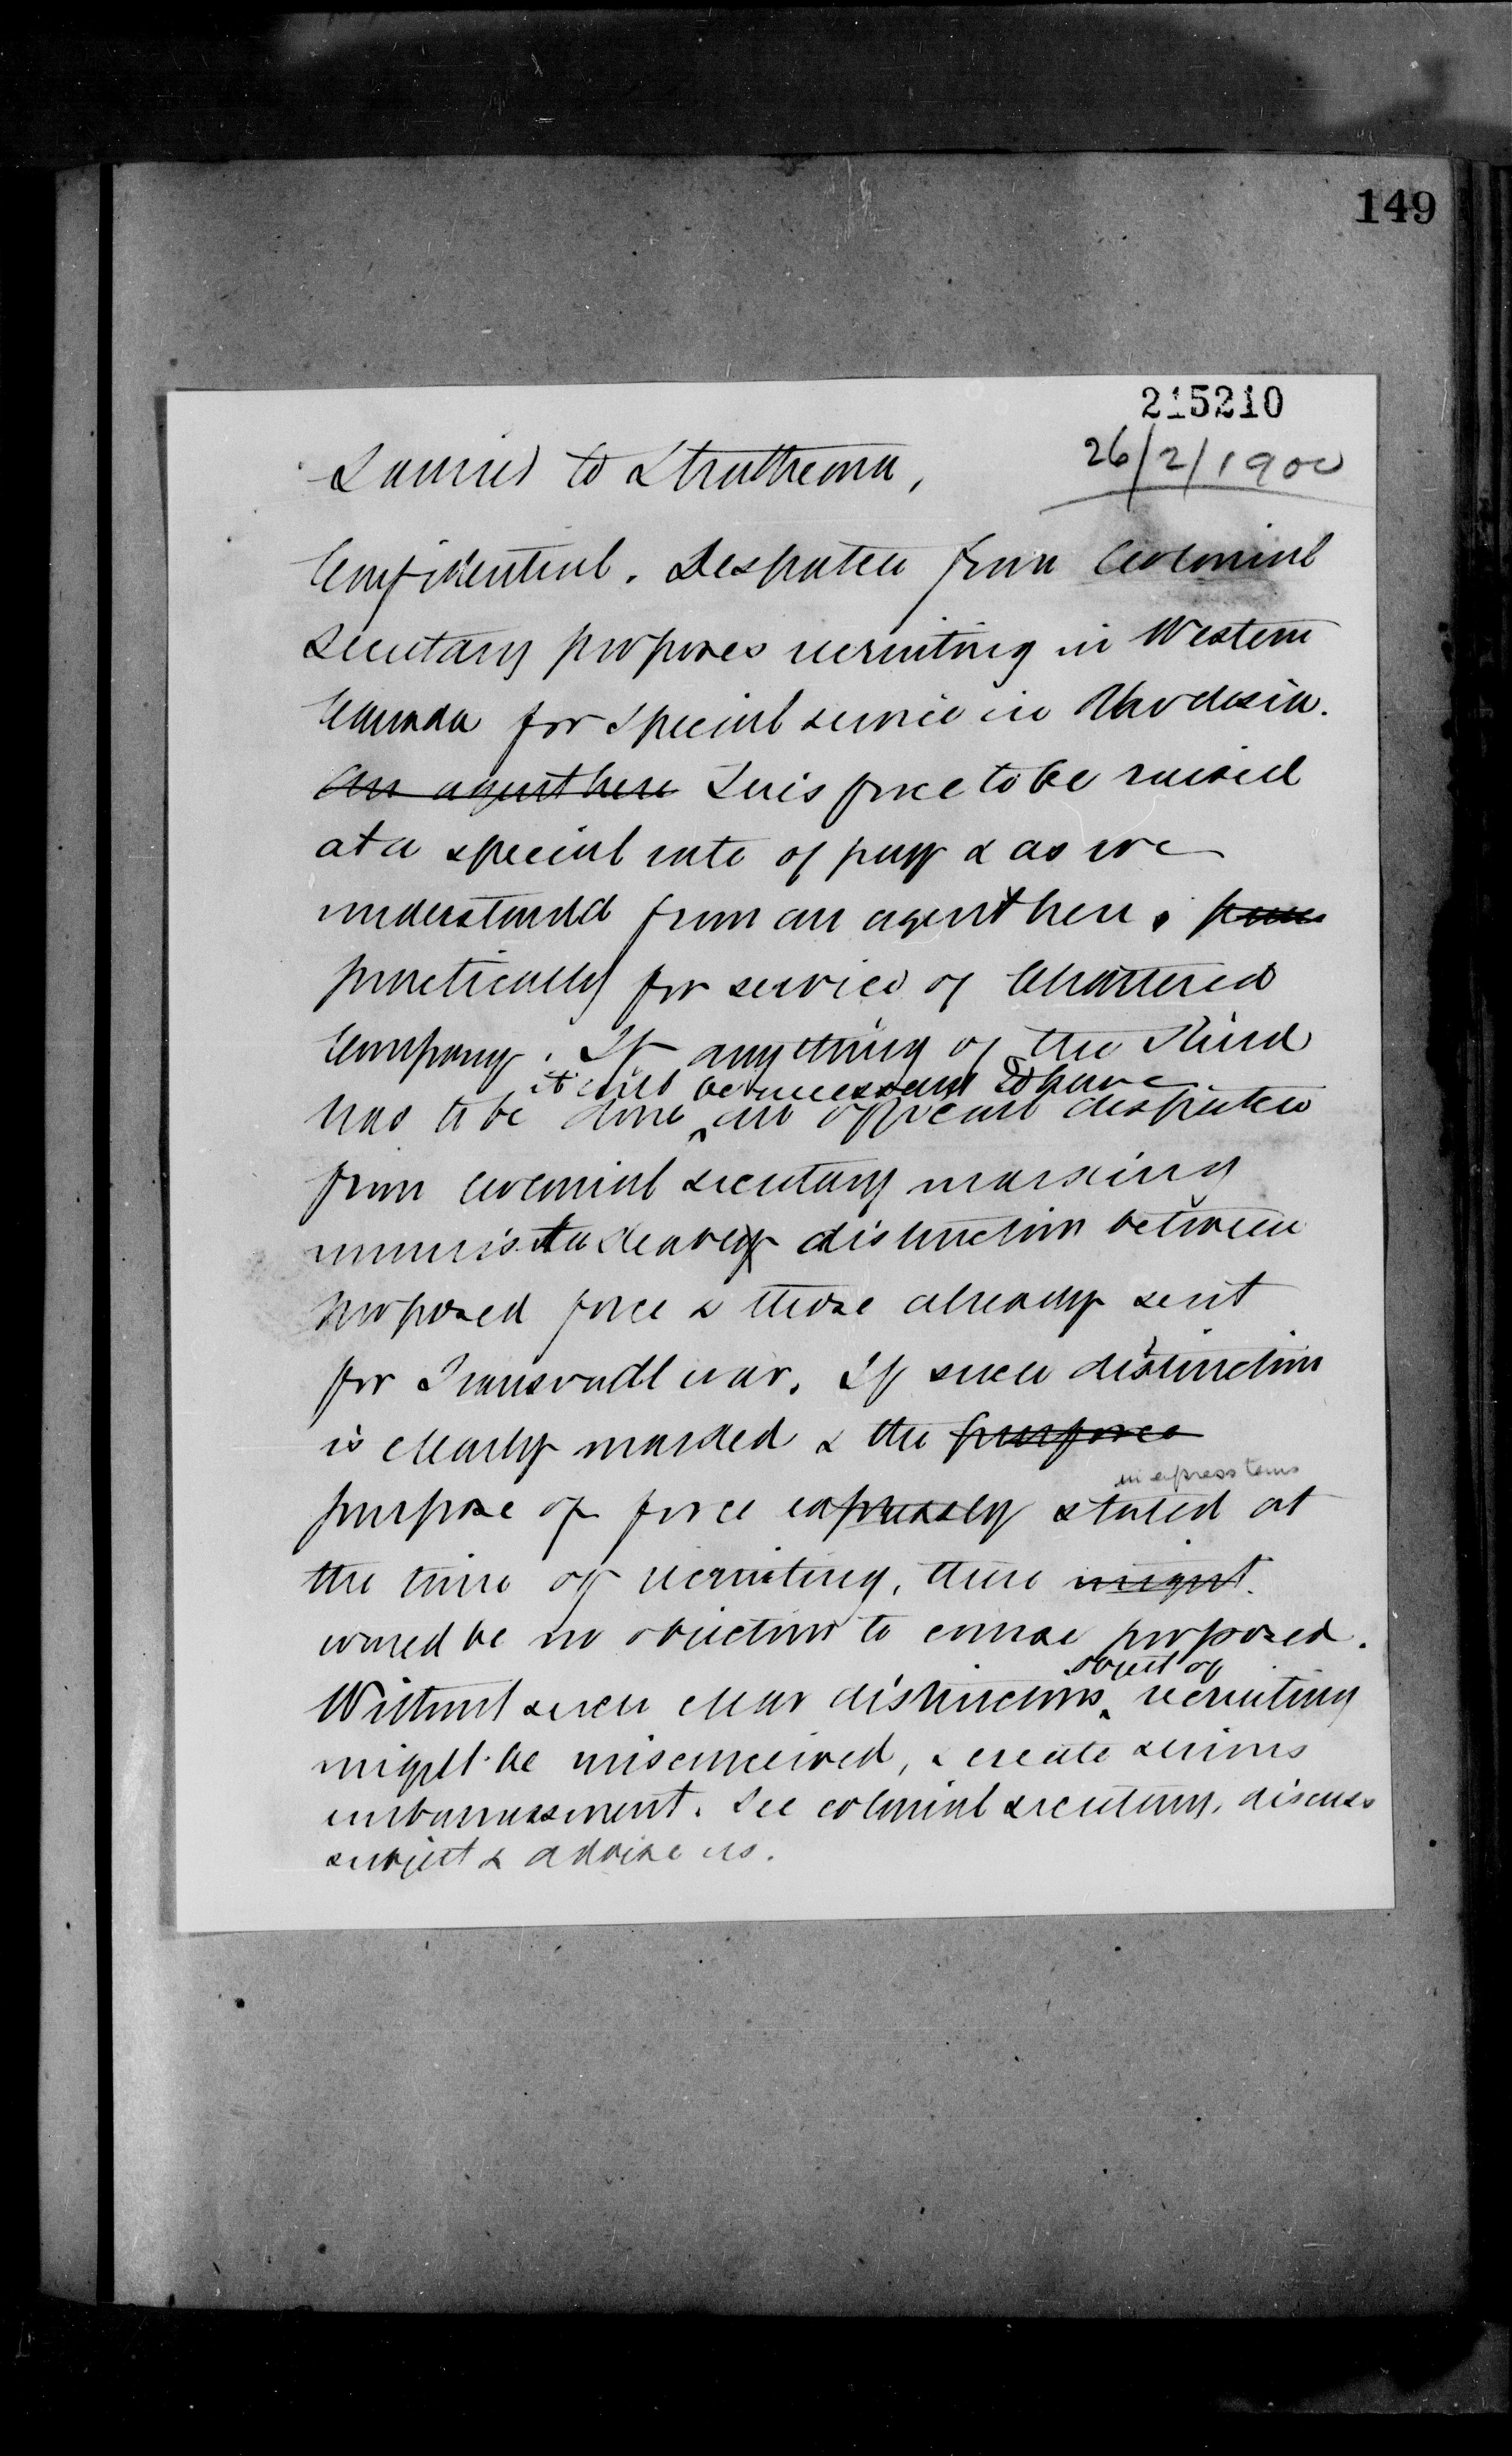 149
215210
26/2/1900
Laurier to Strathcona,
Confidential. Despatch from Colonial
Secretary proposes recruiting in Western
Canada for special service in Rhodesia.
An agent here This force to be raised
at a special rate of pay & as we
understand from an agent here,
practically for service of Chartered
Company. If anything of the kind
it will be necessary to have
has to be done an official despatch
from colonial secretary marking
clear distinction between
proposed force & those already sent
for Transvaal war. If such distinction
is clearly marked & the purposes
in express terms
purpose of force expressly stated at
the time of recruiting, there might
would be no objection to course proposed.
object of
Without such clear distinctions recruiting
might be misconceived, & create serious
embarrassment. See colonial secretary, discuss
subject & advise us.